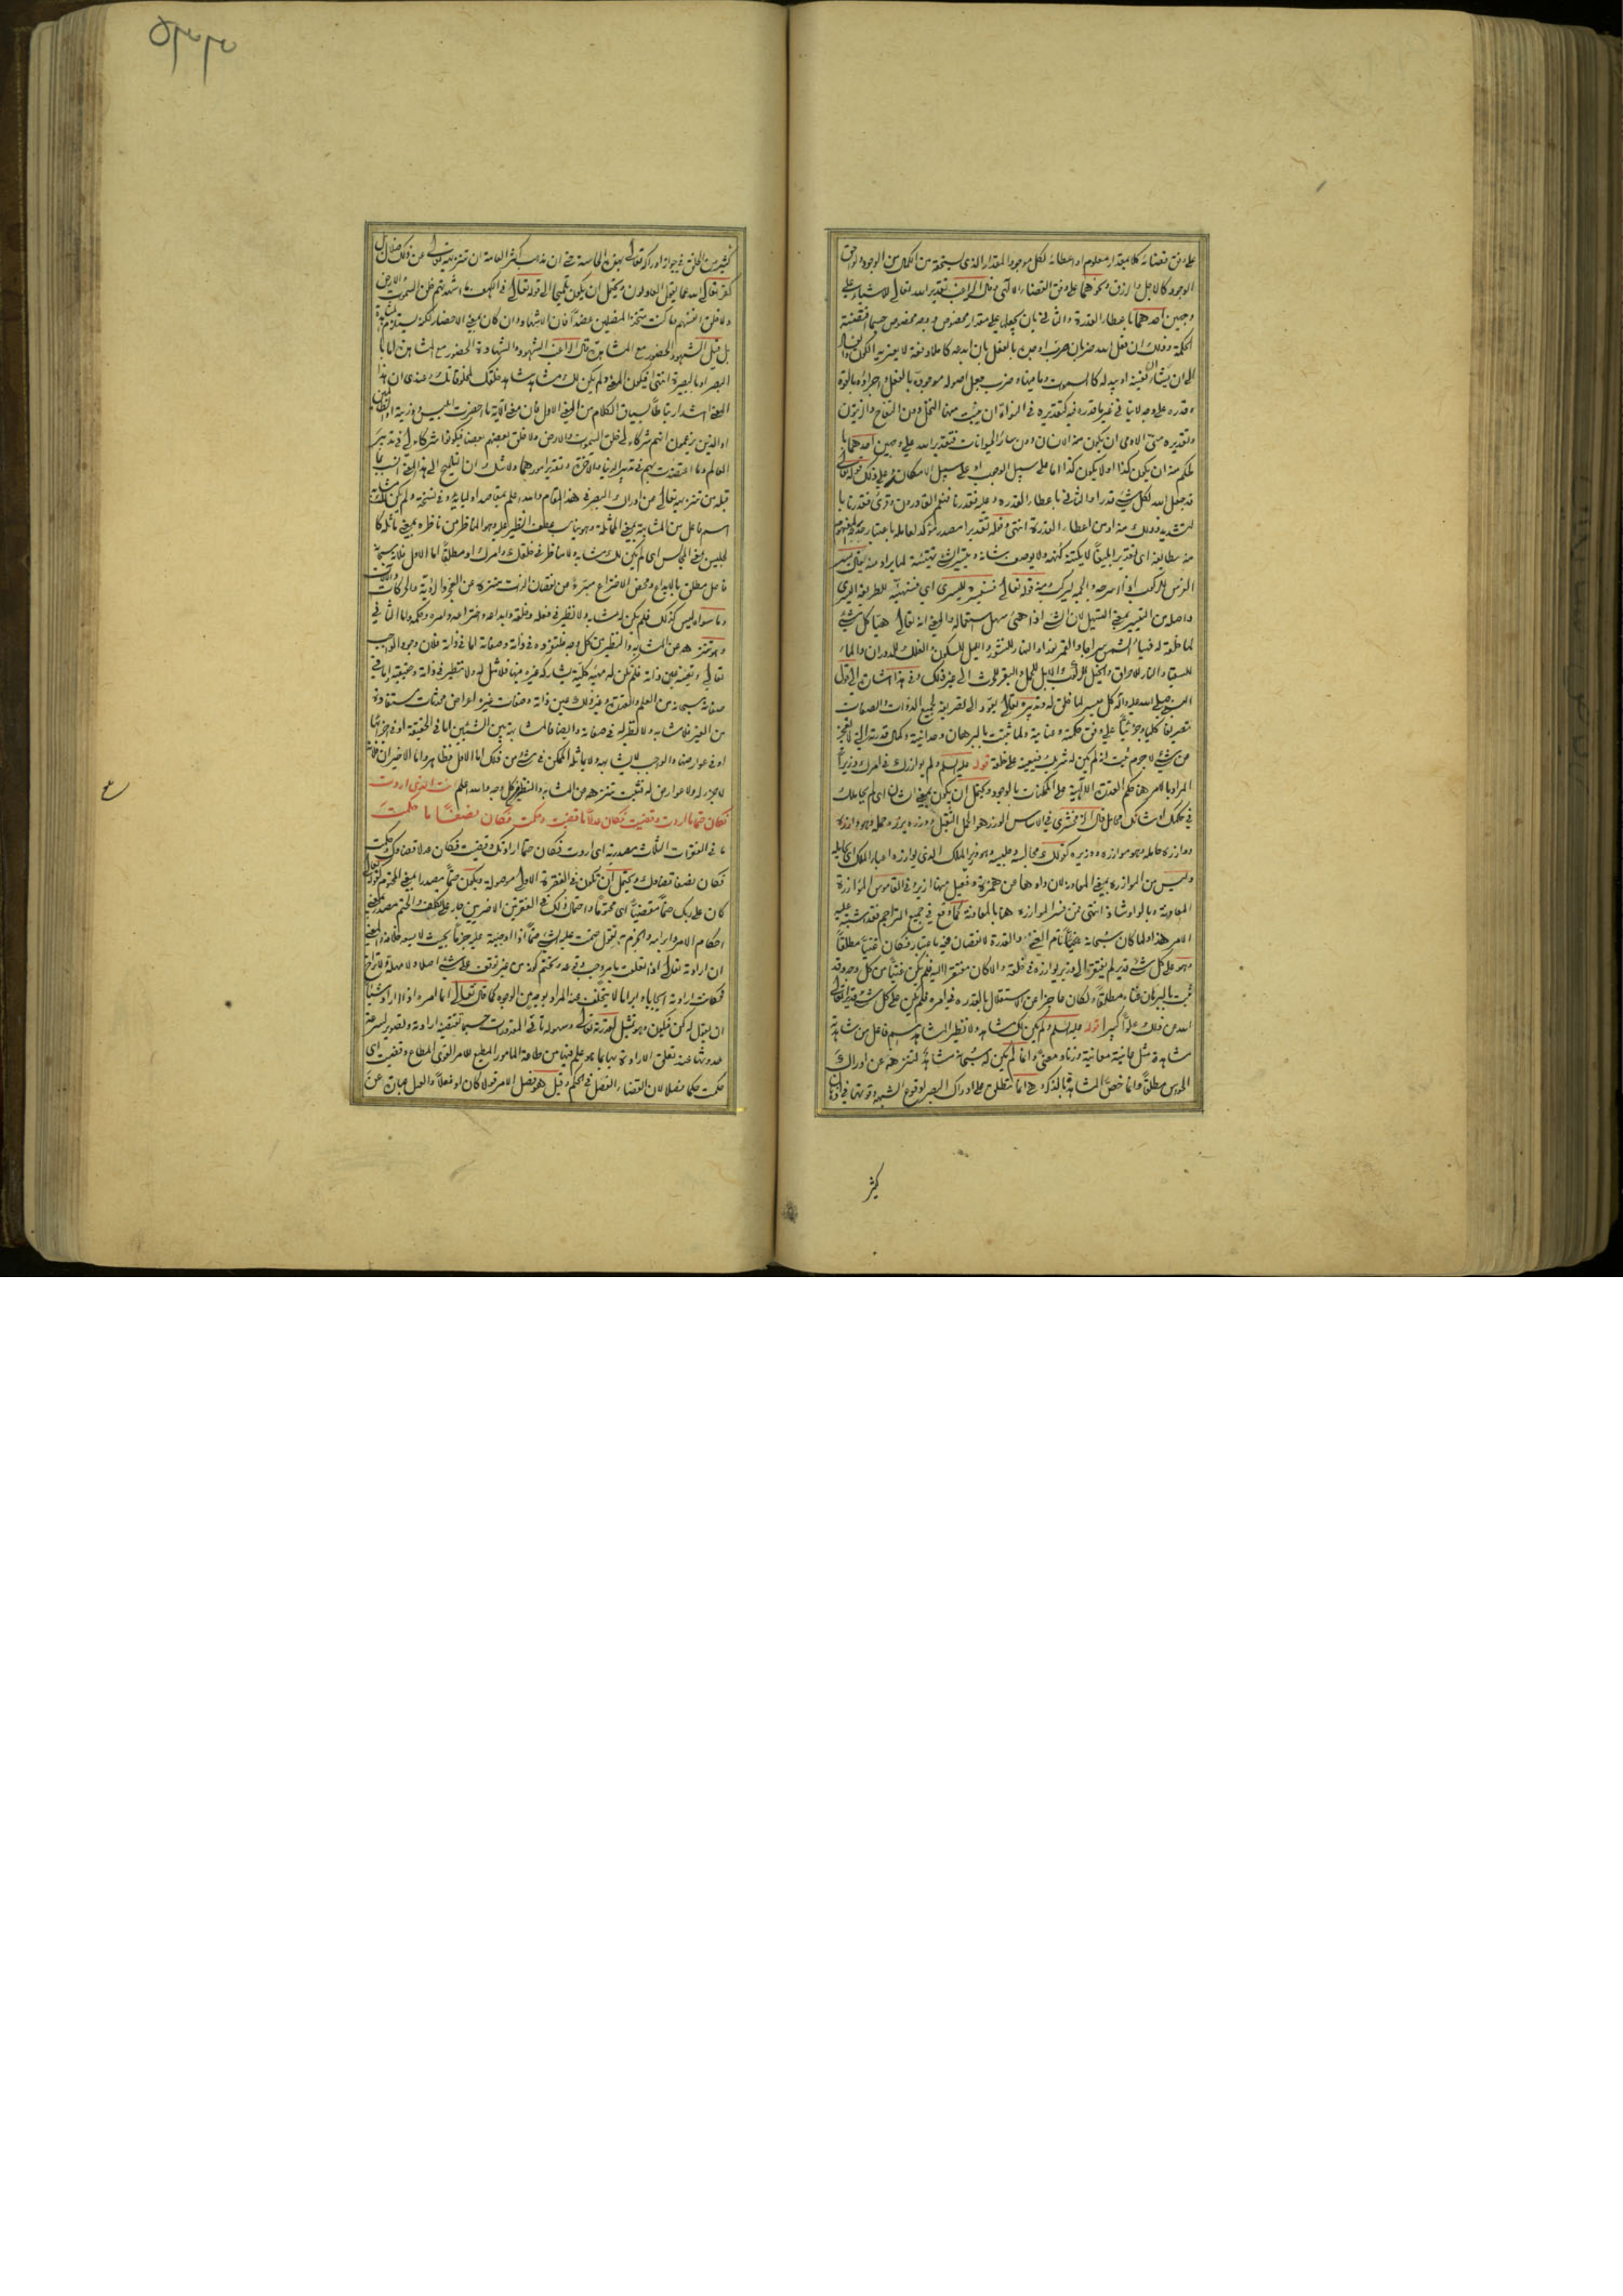 على وفق قضائه كلا بمقدار معلوم او اعطائه لكل موجود المقدار الذى يستحقه من الكمال من الوجود ولواحق
الوجود كالاجل والرزق ونحوهما على وفق القضاء الالهى وقال الراغب تقدير الله تعالى للاشياء على
وجهين احدهما باعطاء القدرة والثانى بان يجعل على مقدار مخصوص ووجه مخصوص حسبما اقتضته
الحكمة وذلك ان فعل الله ضربان ضرب اوجده بالفعل بان ابدعه كاملا دفعة لا يعتريه الكون والفساد
الى ان يشاء ان يفنيه او يبدله كالسموات وما فيها وضرب جعل اصوله موجودة بالفعل واجزاؤه بالقوة
وقدره على وجه لا يتاتى غير ما قدره فيه كتقديره فى النواة ان ينبت منها النخل دون التفاح والزيتون
وتقديره منى الادمى ان يكون منه الانسان دون سائر الحيوانات فتقدير الله على وجهين احدهما با
لحكم منه ان يكون كذا او لا يكون كذا اما على سبيل الوجوب او على سبيل الامكان وعلى ذلك قوله تعالى
قد جعل الله لكل شىء قدرا والثانى باعطاء القدرة وعليه فقدرنا فنعم القادرون وقرئ فقدرنا با
لتشديد وذلك منه او من اعطاء القدرة انتهى وقوله تقديرا مصدر مؤكد لعامله باعتبار
الفرس للركوب اذا اسرجه والجمه ليركب ومنه قوله تعالى فسنيسره لليسرى اى فسنهيئه للطريقة اليسرى
واصله من التيسير بمعنى التسهيل لان الشىء اذا هيئ سهل استعماله والمعنى انه تعالى هيأ كل شىء
لما خلقه له
النبى صلى الله عليه واله كل ميسر لما خلق له
تصريفا كليا وجزئيا على وفق حكمته وعنايته ولما ثبت بالبرهان وحدانيته وكمال قدرته
من شىء لا جرم ثبت انه لم يكن له شريك فيعينه على خلقه قوله عليه السلم ولم يوازرك فى امرك وزير
المراد بالامر هنا حكم القدرة الالهية على الممكنات بالوجود ويحتمل ان يكون بمعنى الشان اى لم يحاملك
فى حكمك او شانك محامل قال الزمخشرى فى الاساس الوزر هو الحمل الثقيل ووزره يزره حمله وهو وازره
ووازره حامله وهو موازره ووزيره كقولك مجالسه وجليسه وهو وزير الملك الذى يوازره اعباء الملك اى يحامله
وليس من الموازرة بمعنى المعاونة لان واوها عن همزة وفعيل منها ازير وفى القاموس الموازرة
المعاونة وبالواو شاذ انتهى فمن فسر الموازرة هنا بالمعاونة كما وقع فى جميع التراجم فقد اشتبه عليه
الامر هذا ولما كان سبحانه غنيا تام الغنى والقدرة
وهو على كل شىء قدير لم يفتقر الى وزير يوازره فى خلقه والا لكان مفتقرا اليه فلم يكن غنيا من كل وجه وقد
ثبت بالبرهان غناه مطلقا ولكان عاجزا عن الاستقلال بالقدرة فى امره فلم يكن على كل شىء قديرا تعالى
الله عن ذلك علوا كبيرا قوله عليه السلم ولم يكن لك مشاهد ولا نظير المشاهد اسم فاعل من شاهده
مشاهدة مثل عاينه معاينة وزنا ومعنى وانما لم يكن له سبحانه مشاهد لتنزهه عن ادراك
الحواس مطلقا وانما خص المشاهدة بالذكر وهى انما تطلق على ادراك البصر لوقوع الشبهة وقوتها فى اذهان
كثير
كثير من الخلق فى جواز ادراكه تعالى بهذه الحاسة حتى ان مذهب اكثر العامة ان تنزيهه تعالى عن ذلك ضلال بل
كفر تعالى الله عما يقول العادلون ويحتمل ان يكون تلميحا الى قوله تعالى فى الكهف ما اشهدتهم خلق السموات والارض
ولا خلق انفسهم وما كنت متخذ المضلين عضدا فان الاشهاد وان كان بمعنى الاحضار لكنه يستلزم المشاهدة
بل قيل الشهود الحضور مع المشاهدة قال الراغب الشهود والشهادة الحضور مع المشاهدة اما با
لبصر او بالبصيرة انتهى فيكون المعنى ولم يكن لك مشاهد شاهد خلقك لمخلوقاتك وعندى ان هذا
المعنى اشد ارتباطا بسياق الكلام من المعنى الاول
او الذين يزعمون انهم شركاء لى خلق السموات والارض ولا خلق بعضهم بعضا فيكونوا شركاء لى فى تدبير
العالم وما اعتضدت بهم فى تدبير الدنيا والاخرة وتقدير امورهما ولا شك ان التلميح الى هذا المعنى انسب بما
قبله من تنزيهه تعالى عن ادراك البصر فى هذا المقام والله اعلم بمقاصد اوليائه وفى نسخة ولم يكن لك مشابه
اسم فاعل من المشابهة بمعنى المماثلة وهو يناسب عطف النظير عليه وهو المناظر من ناظره بمعنى ماثله كا
لجليس بمعنى المجالس اى لم يكن لك مشابه ولا مناظر فى خلقك وامرك او مطلقا اما الاول فلانه سبحانه
فاعل مطلق بالابداع ومحض الاختراع مبرء عن نقصان الذات منزه عن العجز
وما سواه ليس كذلك فلم يكن له مشابه ولا نظير فى فعله وخلقه وابداعه واختراعه وامره وحكمه واما الثانى
وهو تنزهه عن المشابه والنظير من كل وجه
من الغير فلا مشابه ولا نظير له فى صفاته وايضا فالمشابهة بين الشيئين اما فى الحقيقة او فى اجزائها
او فى عوارضها والواجب لا يشابه ولا يماثله الممكن فى شىء من ذلك اما الاول فظاهر واما الاخيران فلانه
لا جزء له ولا عوارض له فثبت تنزهه عن المشابه والنظير من كل وجه والله اعلم انت الذى اردت
فكان حتما ما اردت وقضيت فكان عدلا ما قضيت وحكمت فكان نصفا ما حكمت
ما فى الفقرات الثلاث مصدرية اى اردت فكان حتما ارادتك وقضيت فكان عدلا قضاؤك وحكمت
فكان نصفا قضاؤك ويحتمل ان تكون فى الفقرة الاولى موصولة ويكون حتما مصدرا بمعنى المحتوم كقوله تعالى
كان على ربك حتما مقضيا
احكام الامر وابرامه والجزم به تقول حتمت عليه الشىء حتما اذا اوجبته عليه جزما بحيث لا يسعه خلافه والمعنى
ان ارادته تعالى اذا تعلقت بامر وجب وقوعه وتحتم كونه من غير توقف على شىء اصلا ولا مهلة ولا تراخ
فكانت ارادته ايجابا وابراما لا يتخلف عنه المراد بوجه من الوجوه كما قال تعالى انما امره اذا اراد شيئا
ان يقول له كن فيكون وهو تمثيل لقدرته تعالى وسهولة تاتى المقدورات حسبما تقتضيه ارادته وتصوير لسرعة
حدوثها عند تعلق الارادة بها بما هو علم فيها من طاعة المامور المطيع للامر القوى المطاع وقضيت اى
حكمت حكما فصلا لان القضاء الفصل فى الحكم وقيل هو فصل الامر قولا كان او فعلا والعدل عبارة عن